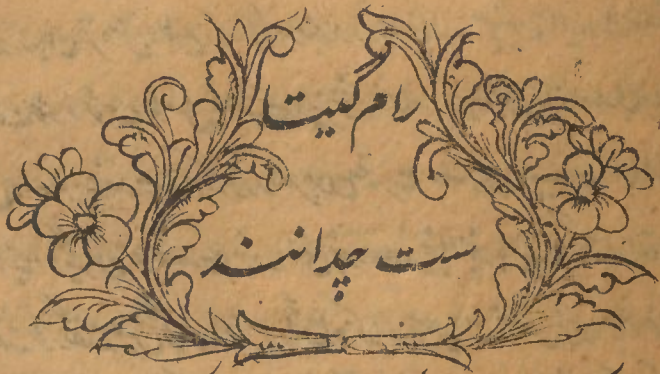 رام گیتا
ست چدانند